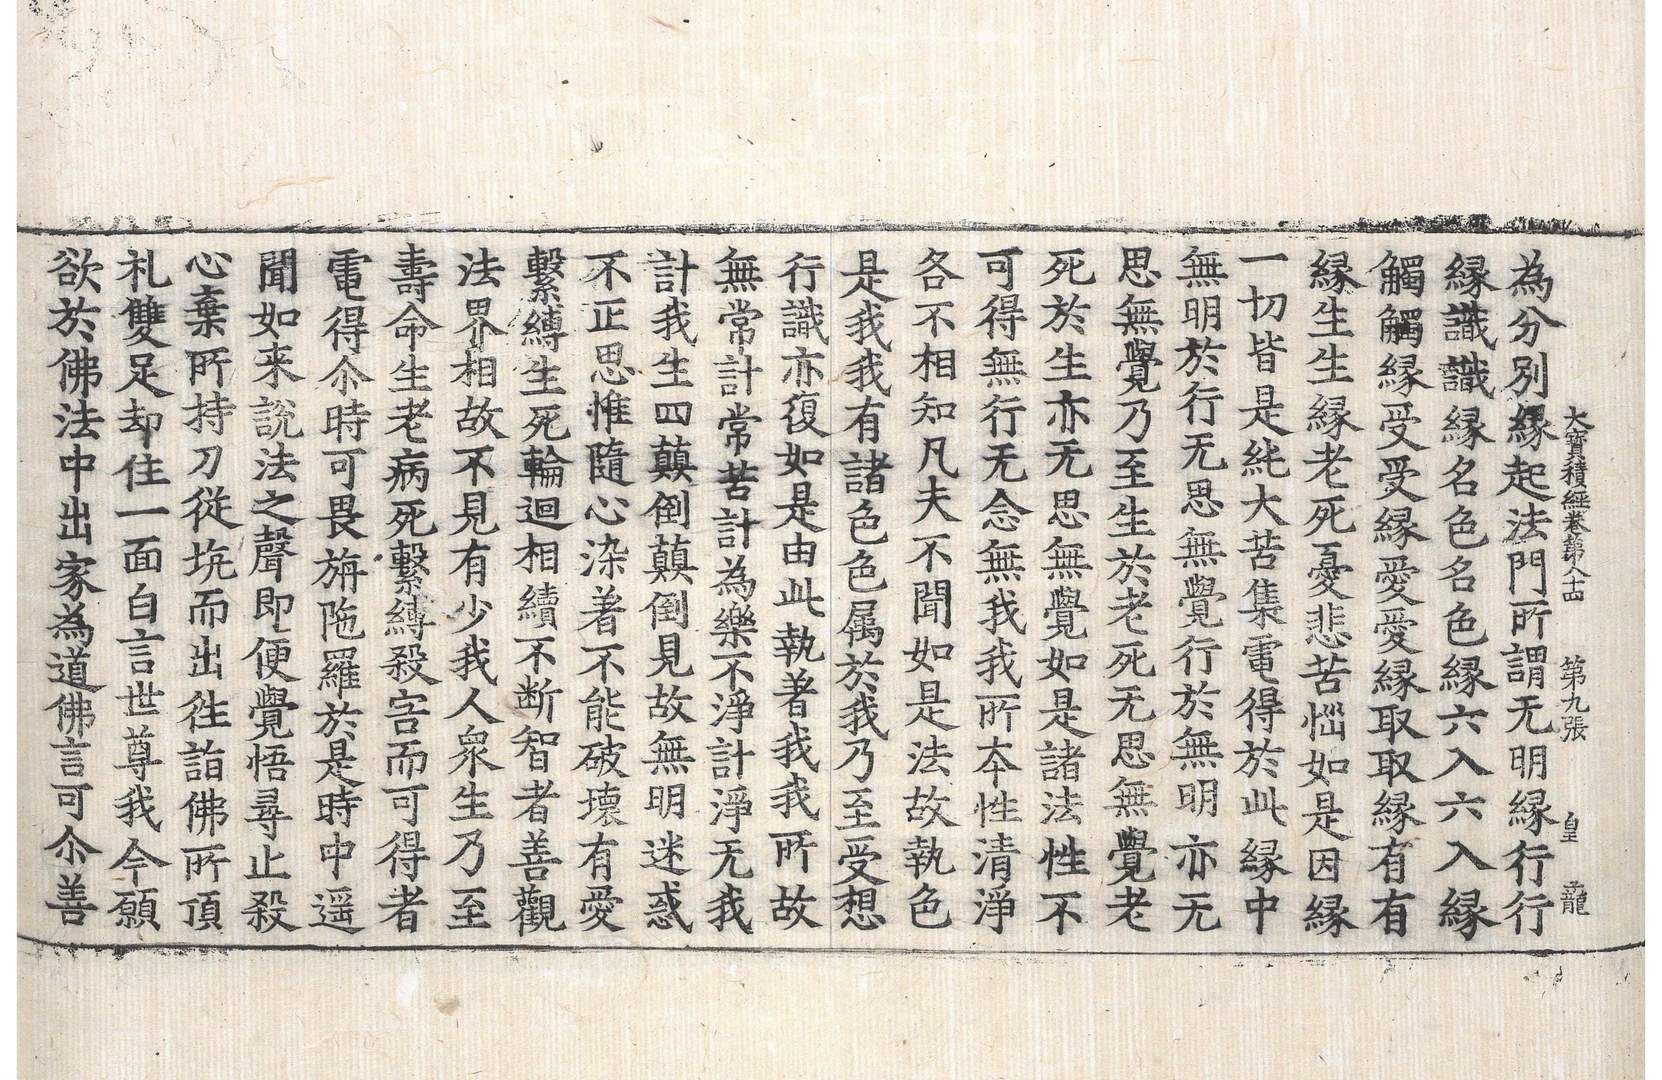 大寶積經卷第八十四 第九張 皇 龍
為分別縁起法門所謂无明縁行行
縁識識縁名色名色縁六入六入縁
觸觸縁受受縁愛愛縁取取縁有有
縁生生縁老死憂悲苦惱如是因縁
一切皆是純大苦集電得於此縁中
無明於行无思無覺行於無明亦无
思無覺乃至生於老死无思無覺老
死於生亦无思無覺如是諸法性不
可得無行无念無我我所本性清淨
各不相知凡夫不聞如是法故執色
是我我有諸色色属於我乃至受想
行識亦復如是由此執著我我所故
無常計常苦計為樂不淨計淨无我
計我生四顛倒顛倒見故無明迷惑
不正思惟隨心染著不能破壞有愛
繫縛生死輪迴相續不断智者善觀
法界相故不見有少我人衆生乃至
壽命生老病死繫縛殺害而可得者
電得尒時可畏旃陁羅於是時中遥
聞如来說法之聲即便覺悟尋止殺
心棄所持刀從坑而出往詣佛所頂
礼雙足却住一面白言世尊我今願
欲於佛法中出家為道佛言可尒善